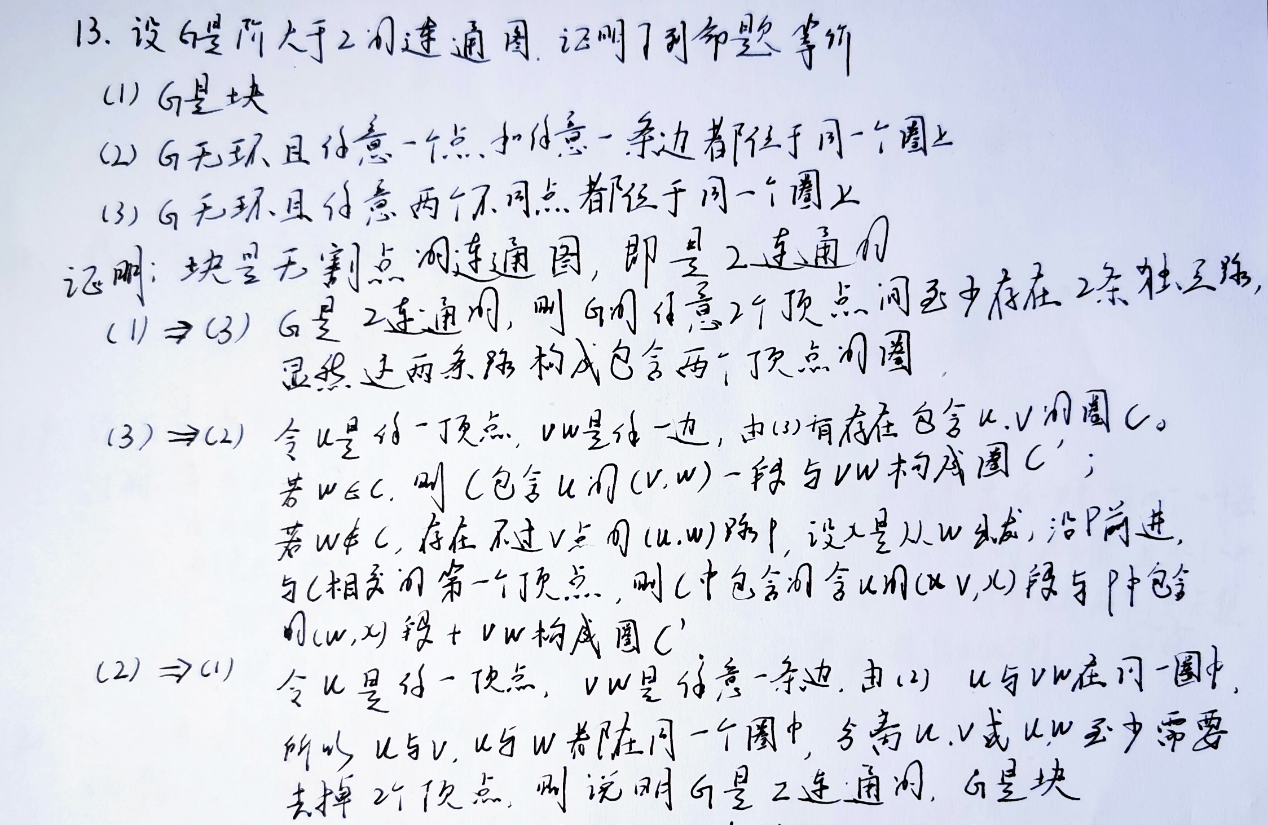 13. 设G是阶大于2的连通图. 证明下列命题等价
(1) G是块
(2) G无环且任意一个点和任意一条边都位于同一个圈上
(3) G无环且任意两个不同点都位于同一个圈上
证明: 块是无割点的连通图, 即是2连通的
(1) ⇒ (3) G是2连通的, 则G的任意2个顶点间至少存在2条独立路,
显然这两条路构成包含两个顶点的圈.
(3) ⇒ (2) 令u是任一顶点, vw是任一边, 由(3)有存在包含u.v的圈C。
若w∈C, 则C包含u的(v,w)一段与vw构成圈C';
若w∉C, 存在不过v点的(u.w)路P, 设x是从w出发, 沿P前进,
与C相交的第一个顶点, 则C中包含的含u的(v,x)段与P中包含
的(w,x)段+vw构成圈C'
(2) ⇒ (1) 令u是任一顶点, vw是任意一条边. 由(2) u与vw在同一圈中,
所以u与v, u与w都在同一个圈中, 分离u.v或u,w至少需要
去掉2个顶点, 则说明G是2连通的, G是块